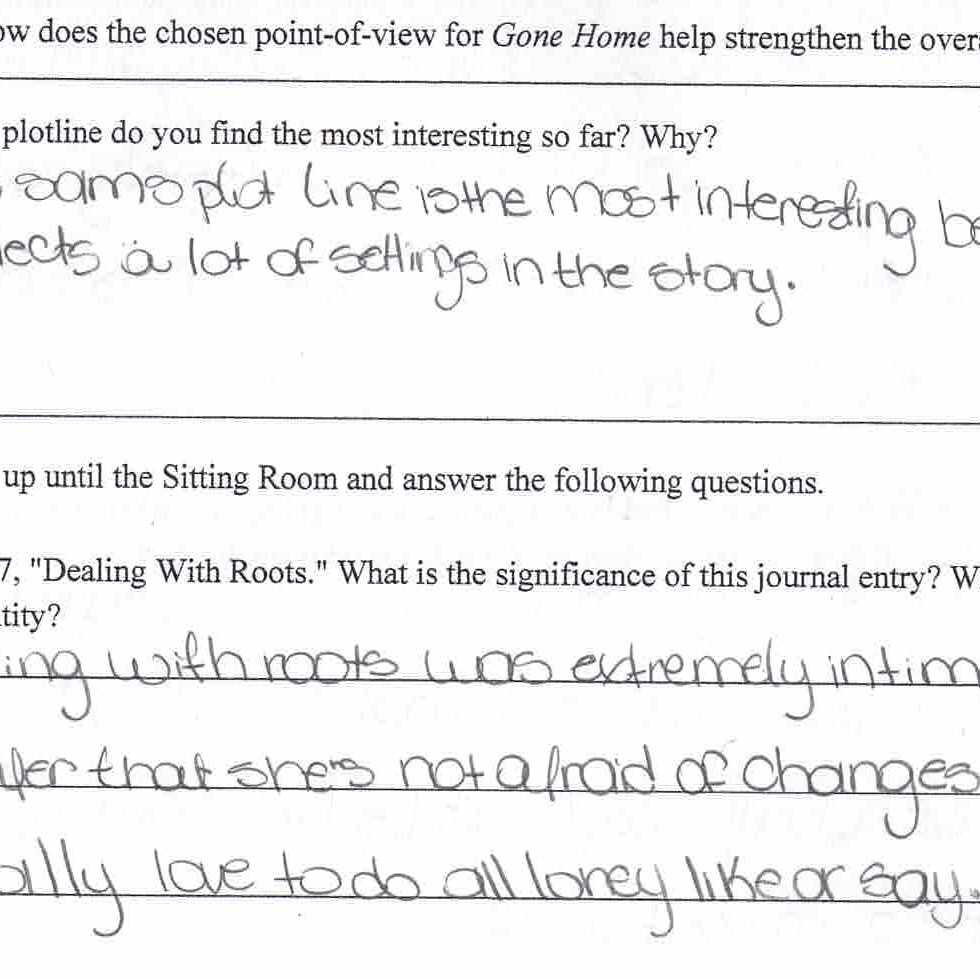 ow does the chosen point-of-view for Gone Home help strengthen the over
plotline do you find the most interesting so far? Why?
sams plot line is the most interesting be
ects a lot of settings in the story.
up until the Sitting Room and answer the following questions.
7, "Dealing With Roots." What is the significance of this journal entry? W
tity?
ing with roots was extremely intim
fer that she's not afraid of changes
ally love to do all loney like or say.